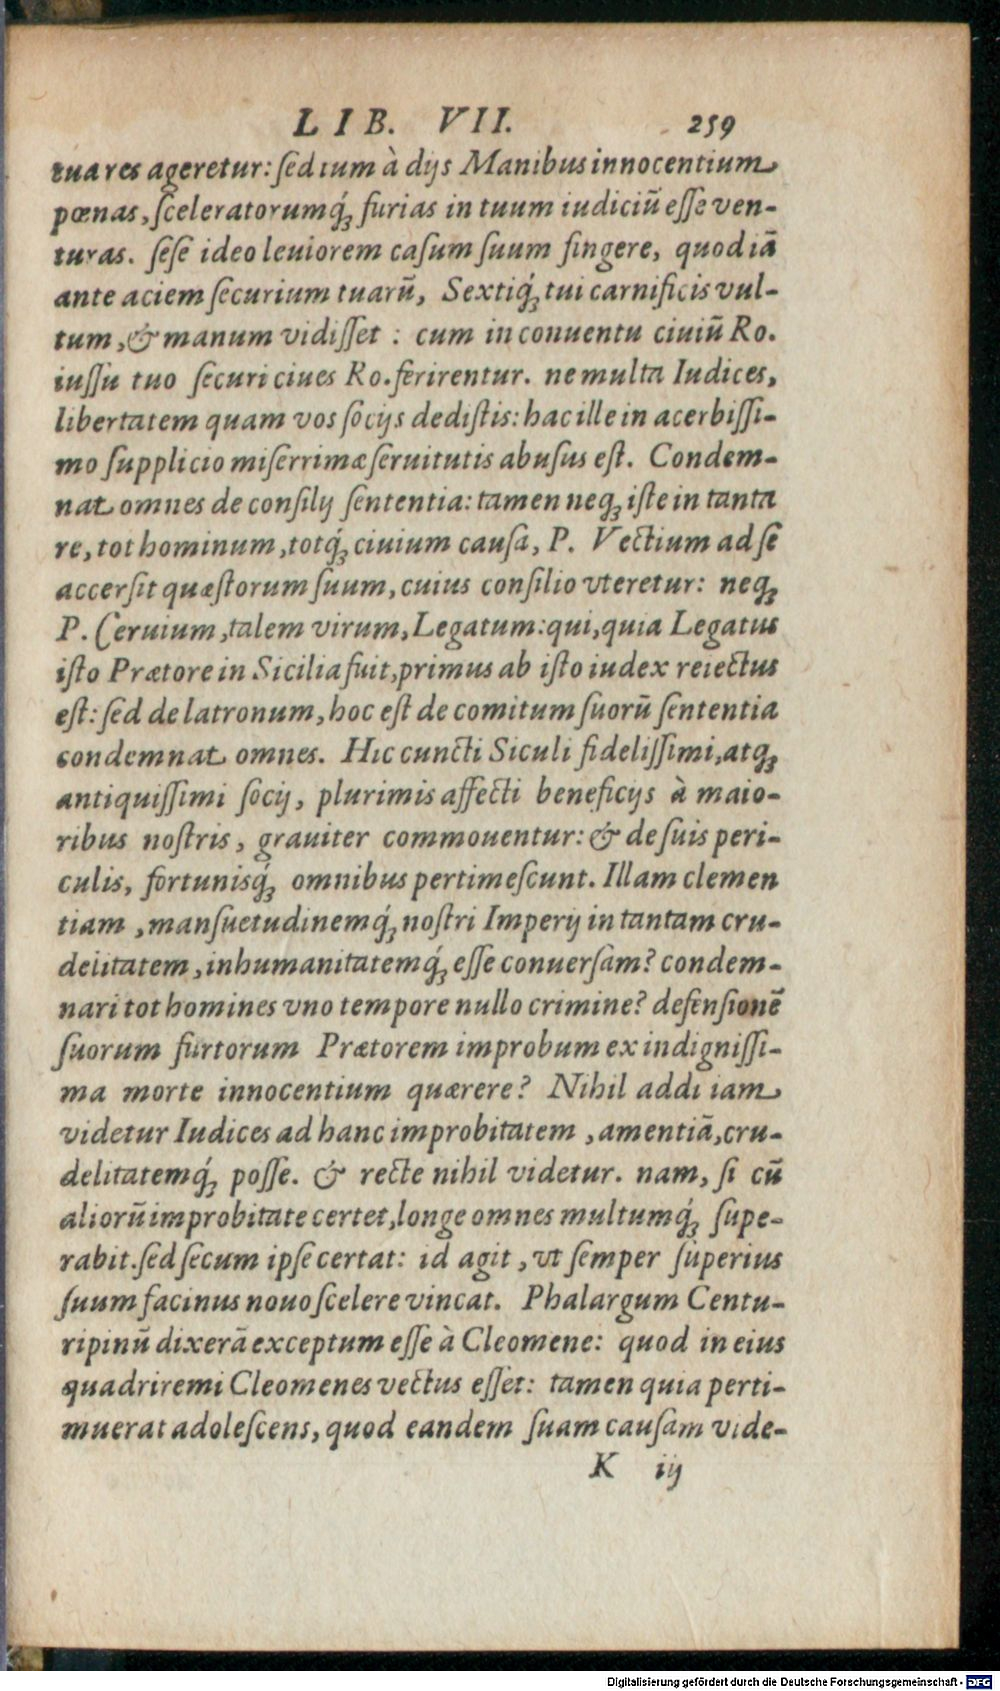 LIB. VII. 259
tua res ageretur: ſed tum à dijs Manibus innocentium
pœnas, ſceleratorumq́ꝫ furias in tuum iudiciũ eſſe ven-
turas. ſeſe ideo leuiorem caſum ſuum fingere, quod iã
ante aciem ſecurium tuarũ, Sextiq́ꝫ tui carnificis vul-
tum, & manum vidiſſet : cum in conuentu ciuiũ Ro.
iuſſu tuo ſecuri ciues Ro. ferirentur. ne multa Iudices,
libertatem quam vos ſocijs dediſtis: hac ille in acerbiſſi-
mo ſupplicio miſerrimæ ſeruitutis abuſus eſt. Condem-
nat omnes de conſilij ſententia: tamen neqꝫ iſte in tanta
re, tot hominum, totq́ꝫ ciuium cauſa, P. Vectium ad ſe
accerſit quæſtorum ſuum, cuius conſilio vteretur: neqꝫ
P. Ceruium, talem virum, Legatum: qui, quia Legatus
iſto Prætore in Sicilia fuit, primus ab iſto iudex reiectus
eſt: ſed de latronum, hoc eſt de comitum ſuorũ ſententia
condemnat omnes. Hic cuncti Siculi fideliſſimi, atqꝫ
antiquiſſimi ſocij, plurimis affecti beneficijs à maio-
ribus noſtris, grauiter commouentur: & de ſuis peri-
culis, fortunisq́ꝫ omnibus pertimeſcunt. Illam clemen
tiam, manſuetudinemq́ꝫ noſtri Imperij in tantam cru-
delitatem, inhumanitatemq́ꝫ eſſe conuerſam? condem-
nari tot homines vno tempore nullo crimine? defenſionẽ
ſuorum furtorum Prætorem improbum ex indigniſſi-
ma morte innocentium quærere? Nihil addi iam
videtur Iudices ad hanc improbitatem, amentiã, cru-
delitatemq́ꝫ poſſe. & recte nihil videtur. nam, ſi cũ
aliorũ improbitate certet, longe omnes multumq́ꝫ ſupe-
rabit. ſed ſecum ipſe certat: id agit, vt ſemper ſuperius
ſuum facinus nouo ſcelere vincat. Phalargum Centu-
ripinũ dixerã exceptum eſſe à Cleomene: quod in eius
quadriremi Cleomenes vectus eſſet: tamen quia perti-
muerat adoleſcens, quod eandem ſuam cauſam vide-
K iij
Digitalisierung gefördert durch die Deutsche Forschungsgemeinschaft - DFG